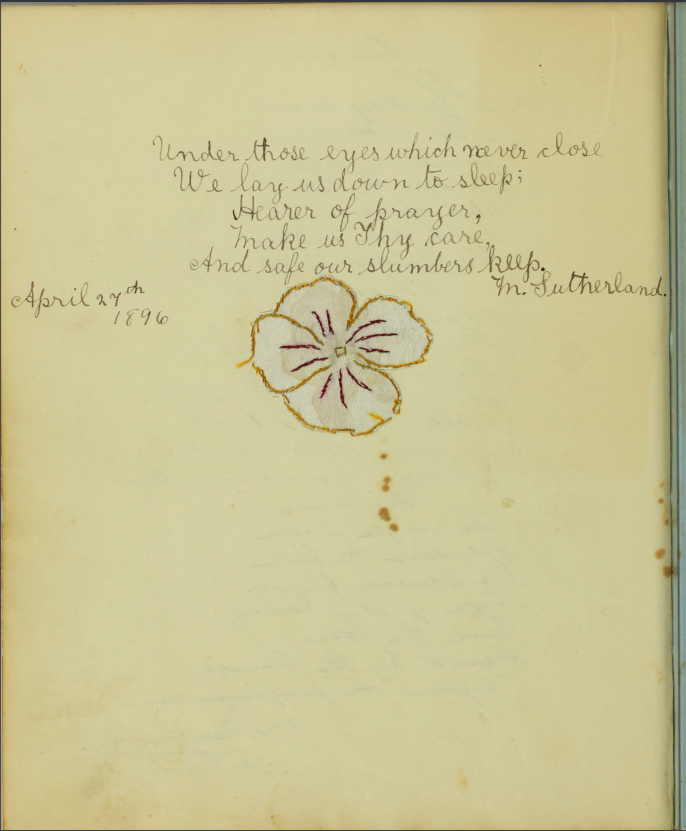 Under those eyes which never close
We lay us down to sleep;
Hearer of prayer,
Make us Thy care,
And safe our slumbers keep.
M. Sutherland.
April 27th
1896